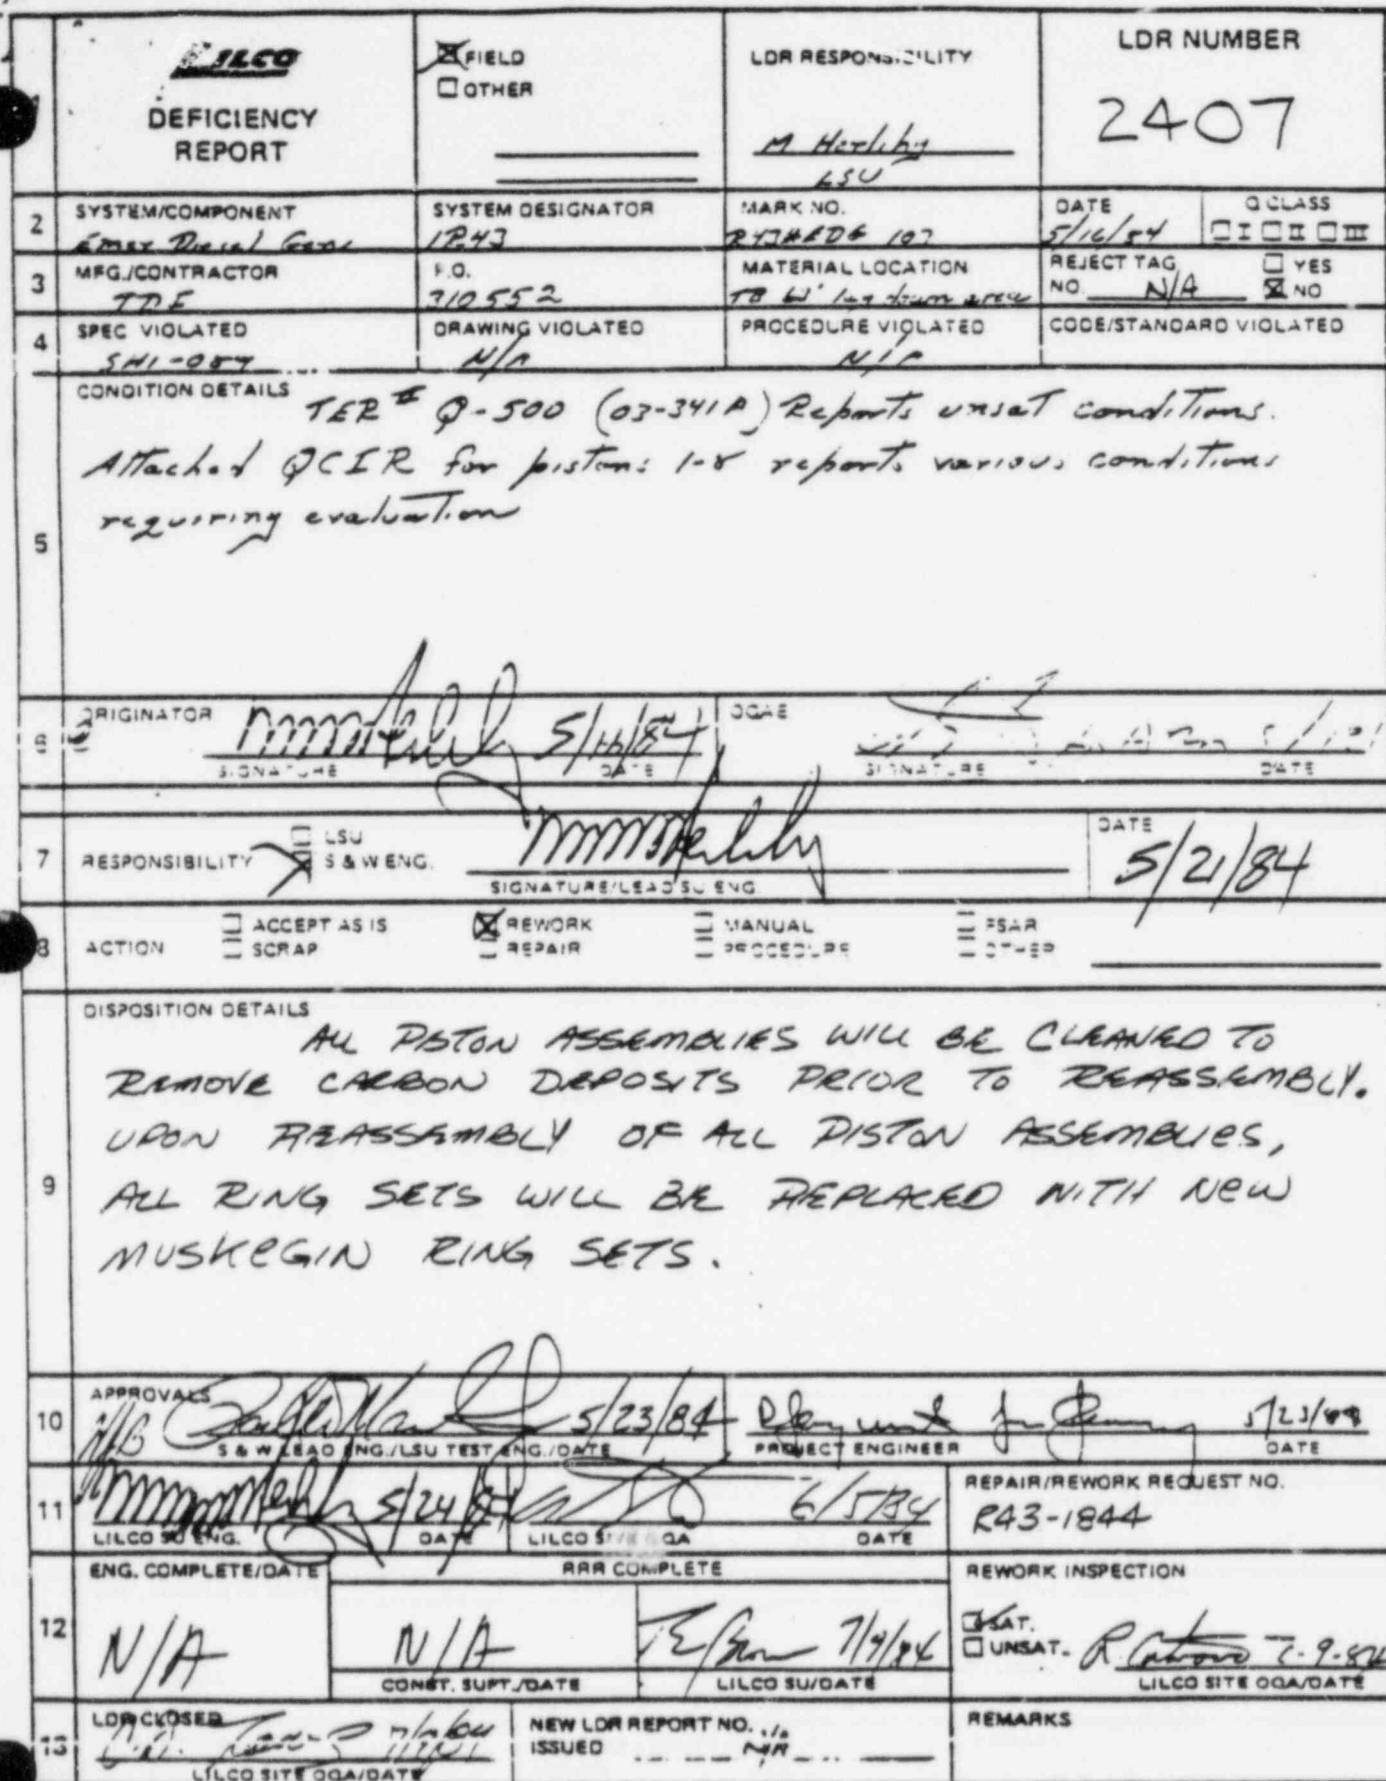 LILCO
DEFICIENCY
REPORT
FIELD
OTHER
LDR RESPONSIBILITY
M Herlihy
LSU
LDR NUMBER
2407
2
SYSTEM/COMPONENT
Emer Diesel Gene
SYSTEM DESIGNATOR
1R43
MARK NO.
DATE
5/16/84
Q CLASS
I II III
3
MFG./CONTRACTOR
TDE
P.O.
310552
MATERIAL LOCATION
TB 63' lay down area
REJECT TAG
NO. N/A
YES
NO
4
SPEC VIOLATED
SH1-089
DRAWING VIOLATED
N/A
PROCEDURE VIOLATED
N/A
CODE/STANDARD VIOLATED
5
CONDITION DETAILS
TER # Q-500 (03-341A) Reports unsat conditions.
Attached QCIR for pistons 1-8 reports various conditions
requiring evaluation
6
ORIGINATOR
5/16/84
SIGNATURE
DATE
OQAE
SIGNATURE
DATE
7
RESPONSIBILITY
LSU
S & W ENG.
SIGNATURE/LEAD SU ENG
DATE
5/21/84
8
ACTION
ACCEPT AS IS
SCRAP
REWORK
REPAIR
MANUAL
PROCEDURE
FSAR
OTHER
9
DISPOSITION DETAILS
ALL PISTON ASSEMBLIES WILL BE CLEANED TO
REMOVE CARBON DEPOSITS PRIOR TO REASSEMBLY.
UPON REASSEMBLY OF ALL PISTON ASSEMBLIES,
ALL RING SETS WILL BE REPLACED WITH NEW
MUSKEGIN RING SETS.
10
APPROVALS
5/23/84
S & W LEAD ENG./LSU TEST ENG./DATE
PROJECT ENGINEER
5/23/84
DATE
11
5/24/84
LILCO SU ENG.
DATE
6/5/84
LILCO SITE OQA
DATE
REPAIR/REWORK REQUEST NO.
R43-1844
12
ENG. COMPLETE/DATE
N/A
RRR COMPLETE
N/A
CONST. SUPT./DATE
7/9/84
LILCO SU/DATE
REWORK INSPECTION
SAT.
UNSAT.
7-9-84
LILCO SITE OQA/DATE
13
LDR CLOSED
LILCO SITE OQA/DATE
NEW LDR REPORT NO.
ISSUED
N/A
REMARKS